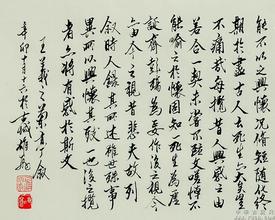 能不以之興懷況脩短隨化終
期於盡古人云死生亦大矣豈
不痛哉每攬昔人興感之由
若合一契未嘗不臨文嗟悼不
能喻之於懷固知一死生為虛
誕齊彭殤為妄作後之視今
亦由今之視昔悲夫故列
敘時人錄其所述雖世殊事
異所以興懷其致一也後之攬
者亦將有感於斯文
王羲之蘭亭敘
辛卯十月十六於古城雄飛